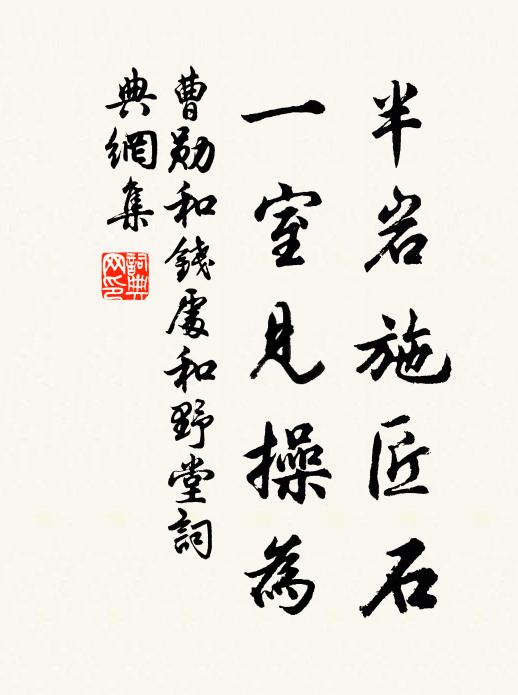 半岩施匠石
一室見操為
曹勛和錢處和野堂詞
典網集
詞典网印